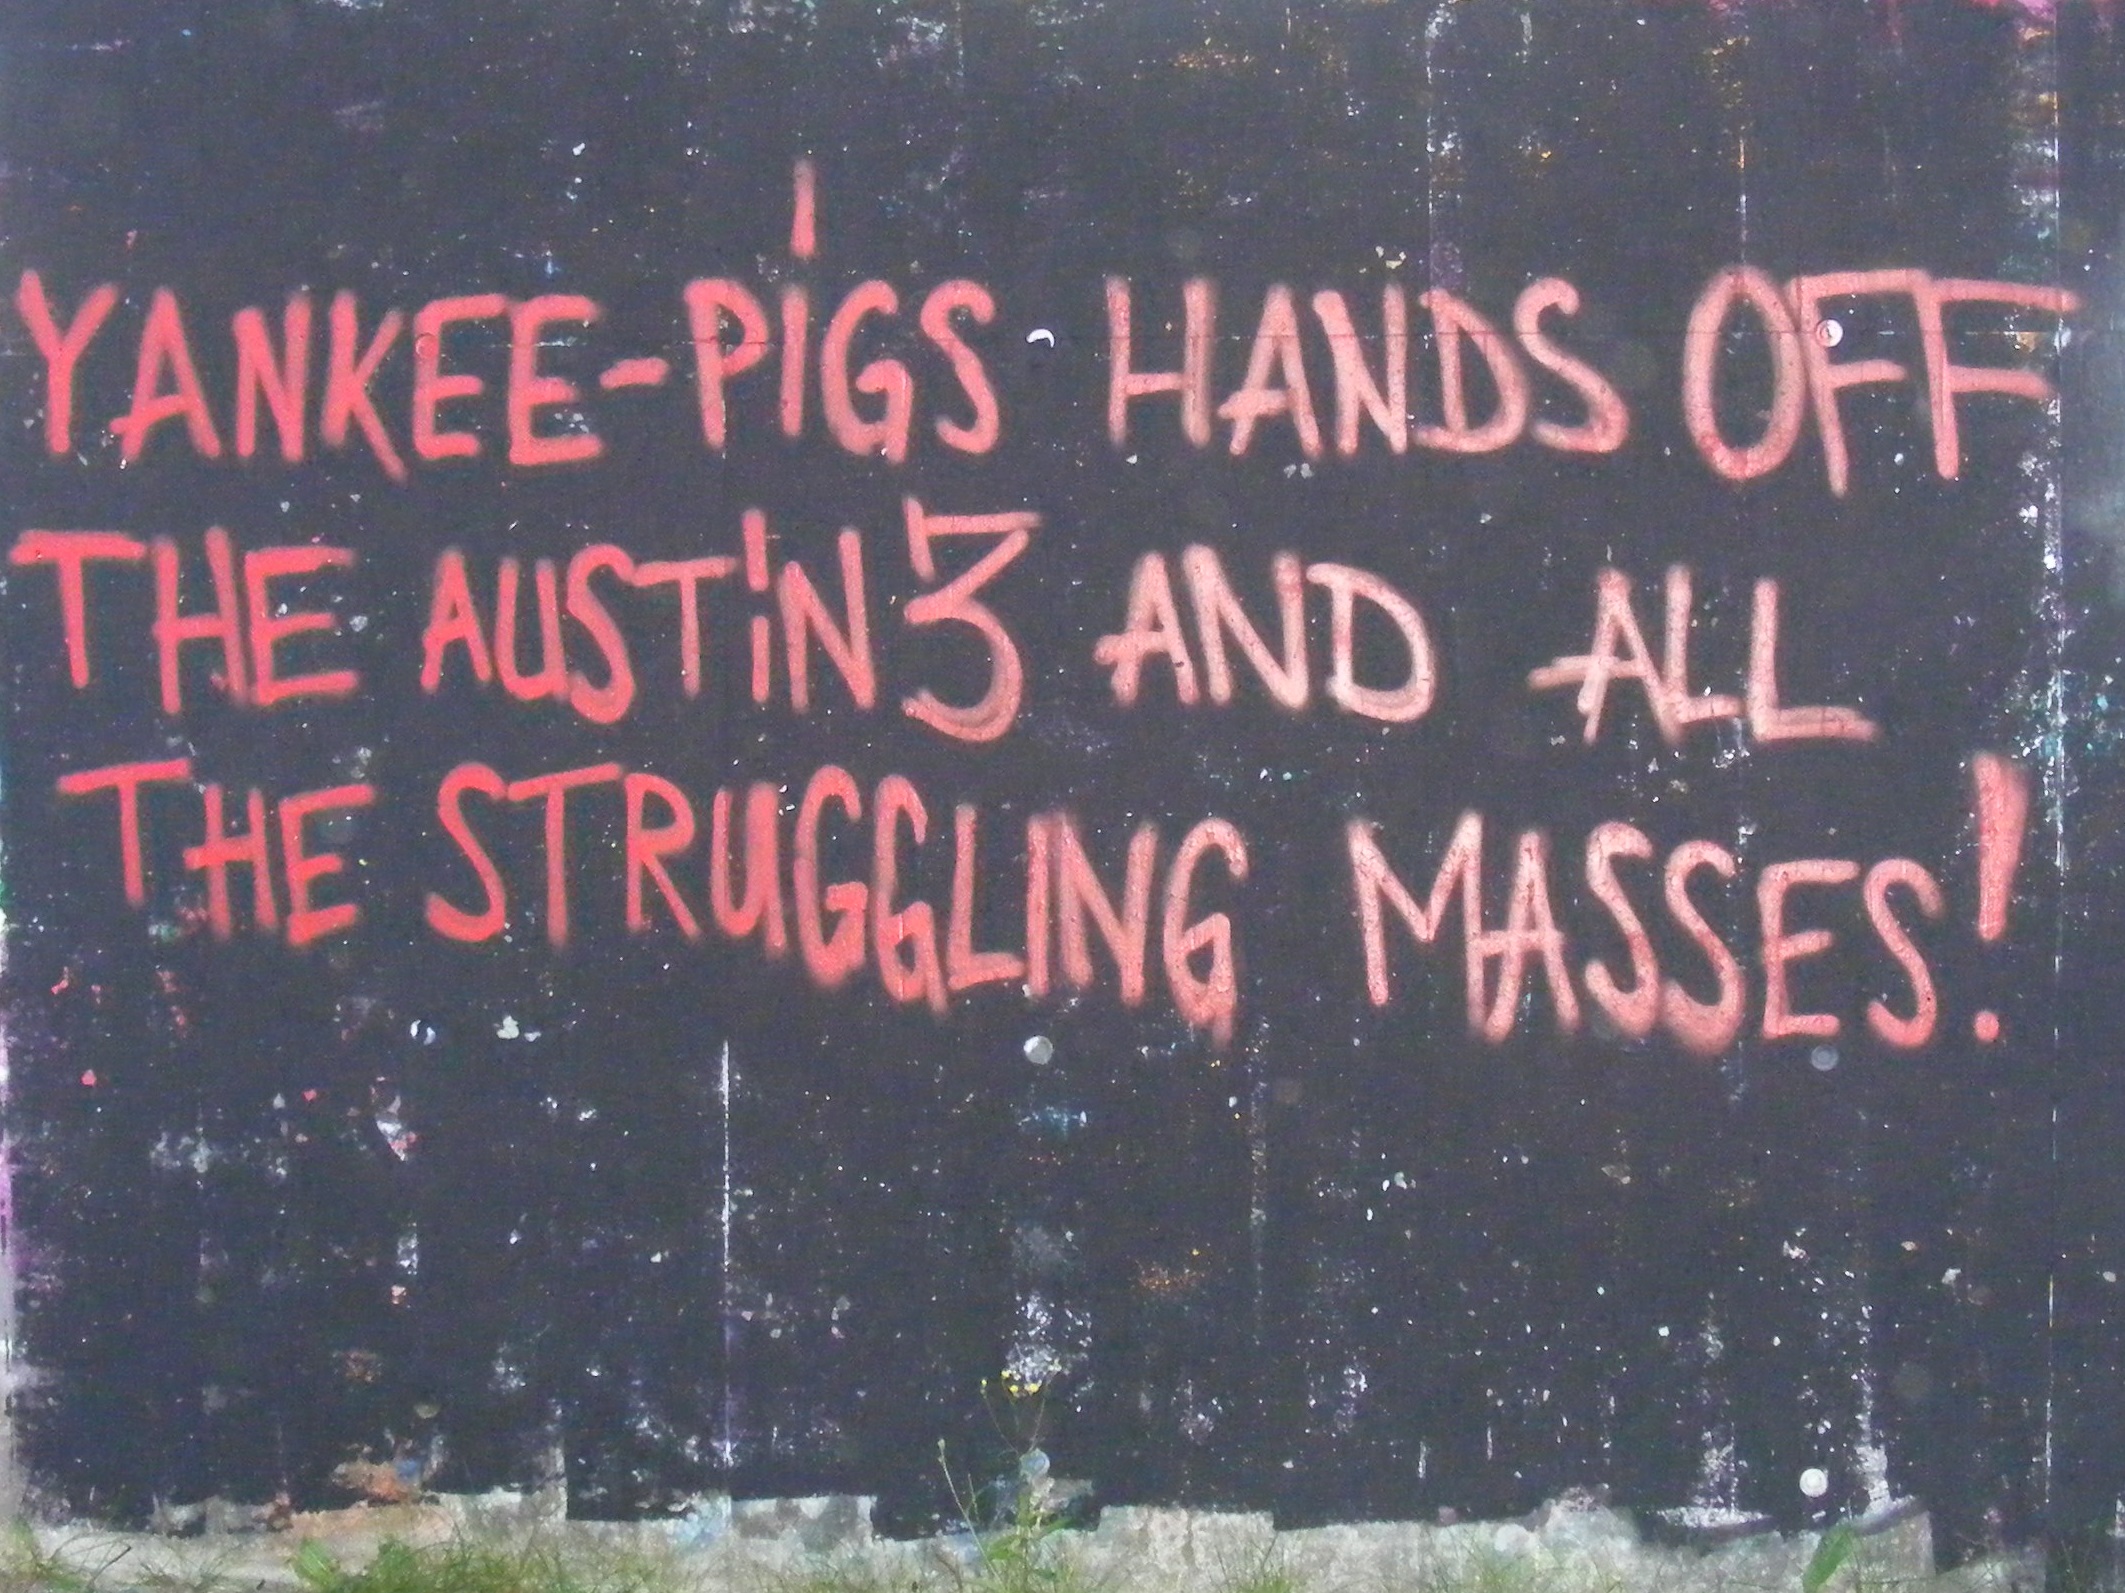 YANKEE-PIGS HANDS OFF
THE AUSTIN 3 AND ALL
THE STRUGGLING MASSES!